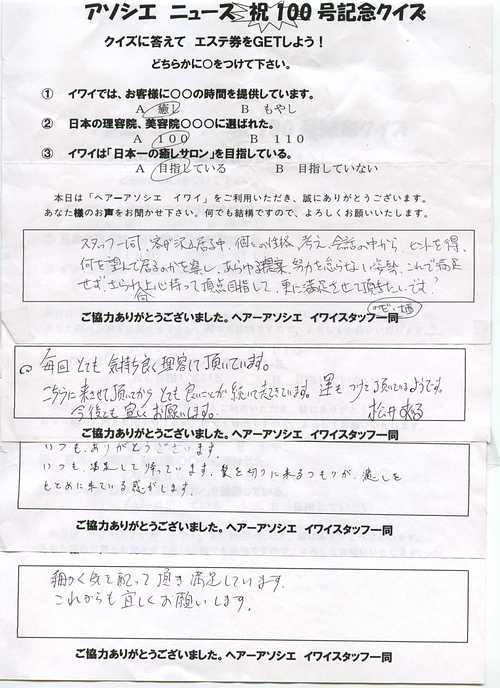 アソシエ ニュース 祝100号記念クイズ
クイズに答えて エステ券をGETしよう！
どちらかに○をつけて下さい。
① イワイでは、お客様に○○の時間を提供しています。
A 癒し B もやし
② 日本の理容院、美容院○○○に選ばれた。
A 100 B 110
③ イワイは「日本一の癒しサロン」を目指している。
A 目指している B 目指していない
本日は「ヘアーアソシエ イワイ」をご利用いただき、誠にありがとうございます。
あなた様のお声をお聞かせ下さい。何でも結構ですので、よろしくお願いいたします。
スタッフ一同、客が沢山居る中、個々の性格、考え、会話の中から、ヒントを得、
何を望んで居るのかを楽しく、あらゆる提案、努力を怠らない姿勢、これで満足
せず、さらなる向上心持って頂点目指して、更に満足させて頂きたいです。
ご協力ありがとうございました。ヘアーアソシエ イワイスタッフ一同
毎回 とても 気持ち良く理容して頂いています。
こちらに来させて頂いてから とても良いことが続いて起きています。運も つけて頂いているようです。
今後とも 宜しくお願いします。 松井
ご協力ありがとうございました。ヘアーアソシエ イワイスタッフ一同
いつも、ありがとうございます。
いつも、満足して帰っています。髪を切りに来るつもりが、癒しを
もとめに来ている感がします。
ご協力ありがとうございました。ヘアーアソシエ イワイスタッフ一同
細かく気を配って頂き満足しています。
これからも宜しくお願いします。
ご協力ありがとうございました。ヘアーアソシエ イワイスタッフ一同